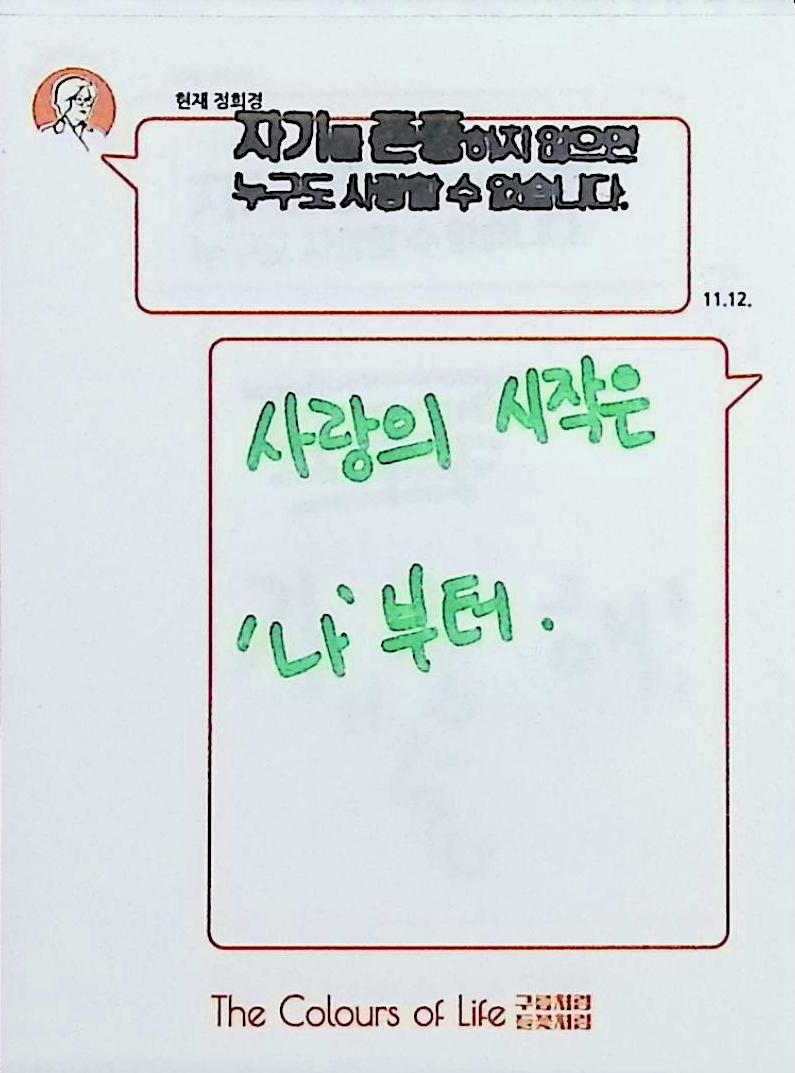 현재 정희경
자기를 존중하지 않으면
누구도 사랑할 수 없습니다.
11.12.
사랑의 시작은
'나'부터.
The Colours of Life 구름처럼
들꽃처럼